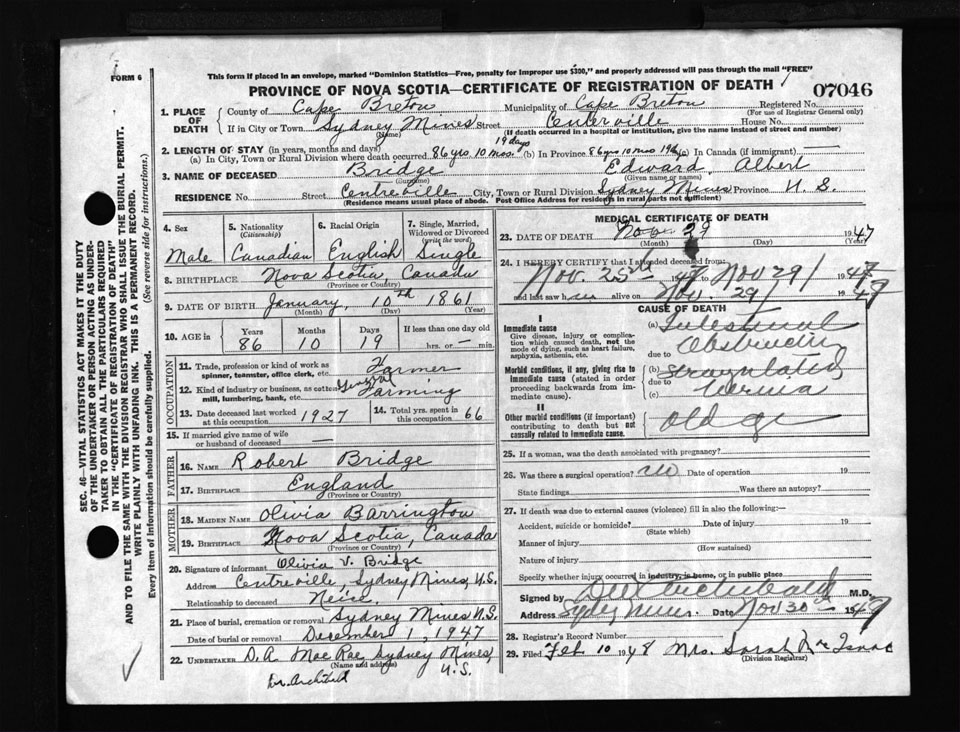 FORM 6
This form if placed in an envelope, marked "Dominion Statistics—Free, penalty for improper use $300," and properly addressed will pass through the mail "FREE"
PROVINCE OF NOVA SCOTIA—CERTIFICATE OF REGISTRATION OF DEATH
07046
1. PLACE OF DEATH
County of Cape Breton Municipality of Cape Breton Registered No.
(For use of Registrar General only)
If in City or Town Sydney Mines Street Centerville House No.
(Name) (If death occurred in a hospital or institution, give the name instead of street and number)
2. LENGTH OF STAY (in years, months and days) 19 days
(a) In City, Town or Rural Division where death occurred 86 yrs. 10 mos. (b) In Province 86 yrs 10 mos 19 (c) In Canada (if immigrant) —
3. NAME OF DECEASED Bridge Edward Albert
(Surname) (Given name or names)
RESIDENCE No. Street Centreville City, Town or Rural Division Sydney Mines Province N.S.
(Residence means usual place of abode. Post Office Address for residents in rural parts not sufficient)
4. Sex 5. Nationality (Citizenship) 6. Racial Origin 7. Single, Married, Widowed or Divorced (write the word)
Male Canadian English Single
8. BIRTHPLACE Nova Scotia, Canada
(Province or Country)
9. DATE OF BIRTH January, 10th 1861
(Month) (Day) (Year)
10. AGE in Years Months Days If less than one day old
86 10 19 hrs. or — min.
OCCUPATION
11. Trade, profession or kind of work as spinner, teamster, office clerk, etc. Farmer
12. Kind of industry or business, as cotton mill, lumbering, bank, etc. General Farming
13. Date deceased last worked at this occupation 1927 14. Total yrs. spent in this occupation 66
15. If married give name of wife or husband of deceased —
FATHER
16. NAME Robert Bridge
17. BIRTHPLACE England
(Province or Country)
MOTHER
18. MAIDEN NAME Olivia Barrington
19. BIRTHPLACE Nova Scotia, Canada
(Province or Country)
20. Signature of informant Olivia V. Bridge
Address Centreville, Sydney Mines, N.S.
Relationship to deceased Neice
21. Place of burial, cremation or removal Sydney Mines N.S.
Date of burial or removal December 1, 1947
22. UNDERTAKER D. A. MacRae Sydney Mines, N.S.
(Name and address)
Dr. Archibald
MEDICAL CERTIFICATE OF DEATH
23. DATE OF DEATH Nov. 29 1947
(Month) (Day) (Year)
24. I HEREBY CERTIFY that I attended deceased from:
Nov. 25th 1947 to Nov 29/ 1947
and last saw h alive on Nov. 29/ 1947
CAUSE OF DEATH
I
Immediate cause
Give disease, injury or complication which caused death, not the mode of dying, such as heart failure, asphyxia, asthenia, etc.
(a) Intestinal Obstruction
due to
Morbid conditions, if any, giving rise to immediate cause (stated in order proceeding backwards from immediate cause).
(b) Strangulated
due to
(c) Hernia
II
Other morbid conditions (if important) contributing to death but not causally related to immediate cause.
Old age
25. If a woman, was the death associated with pregnancy?
26. Was there a surgical operation? Date of operation 19
State findings Was there an autopsy?
27. If death was due to external causes (violence) fill in also the following:—
Accident, suicide or homicide? Date of injury 19
(State which)
Manner of injury
(How sustained)
Nature of injury
Specify whether injury occurred in industry, in home, or in public place
Signed by Archibald M.D.
Address Sydney Mines Date Nov 30th 1947
28. Registrar's Record Number
29. Filed Feb 10 1948 Mrs. Sarah McIsaac
(Division Registrar)
SEC. 46—VITAL STATISTICS ACT MAKES IT THE DUTY
OF THE UNDERTAKER OR PERSON ACTING AS UNDER-
TAKER TO OBTAIN ALL THE PARTICULARS REQUIRED
IN THE "CERTIFICATE OF REGISTRATION OF DEATH"
AND TO FILE THE SAME WITH THE DIVISION REGISTRAR WHO SHALL ISSUE THE BURIAL PERMIT.
WRITE PLAINLY WITH UNFADING INK. THIS IS A PERMANENT RECORD.
Every item of information should be carefully supplied. (See reverse side for instructions.)